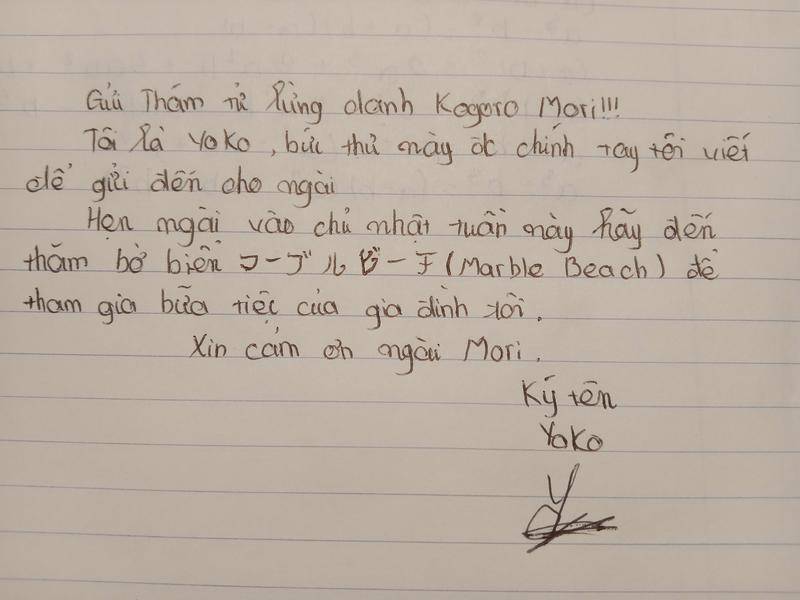 Gửi Thám tử lừng danh Kogoro Mori!!!
Tôi là Yoko, bức thư này đc chính tay tôi viết
để gửi đến cho ngài
Hẹn ngài vào chủ nhật tuần này hãy đến
thăm bờ biển マーブルビーチ (Marble Beach) để
tham gia bữa tiệc của gia đình tôi.
Xin cảm ơn ngài Mori.
Ký tên
Yoko